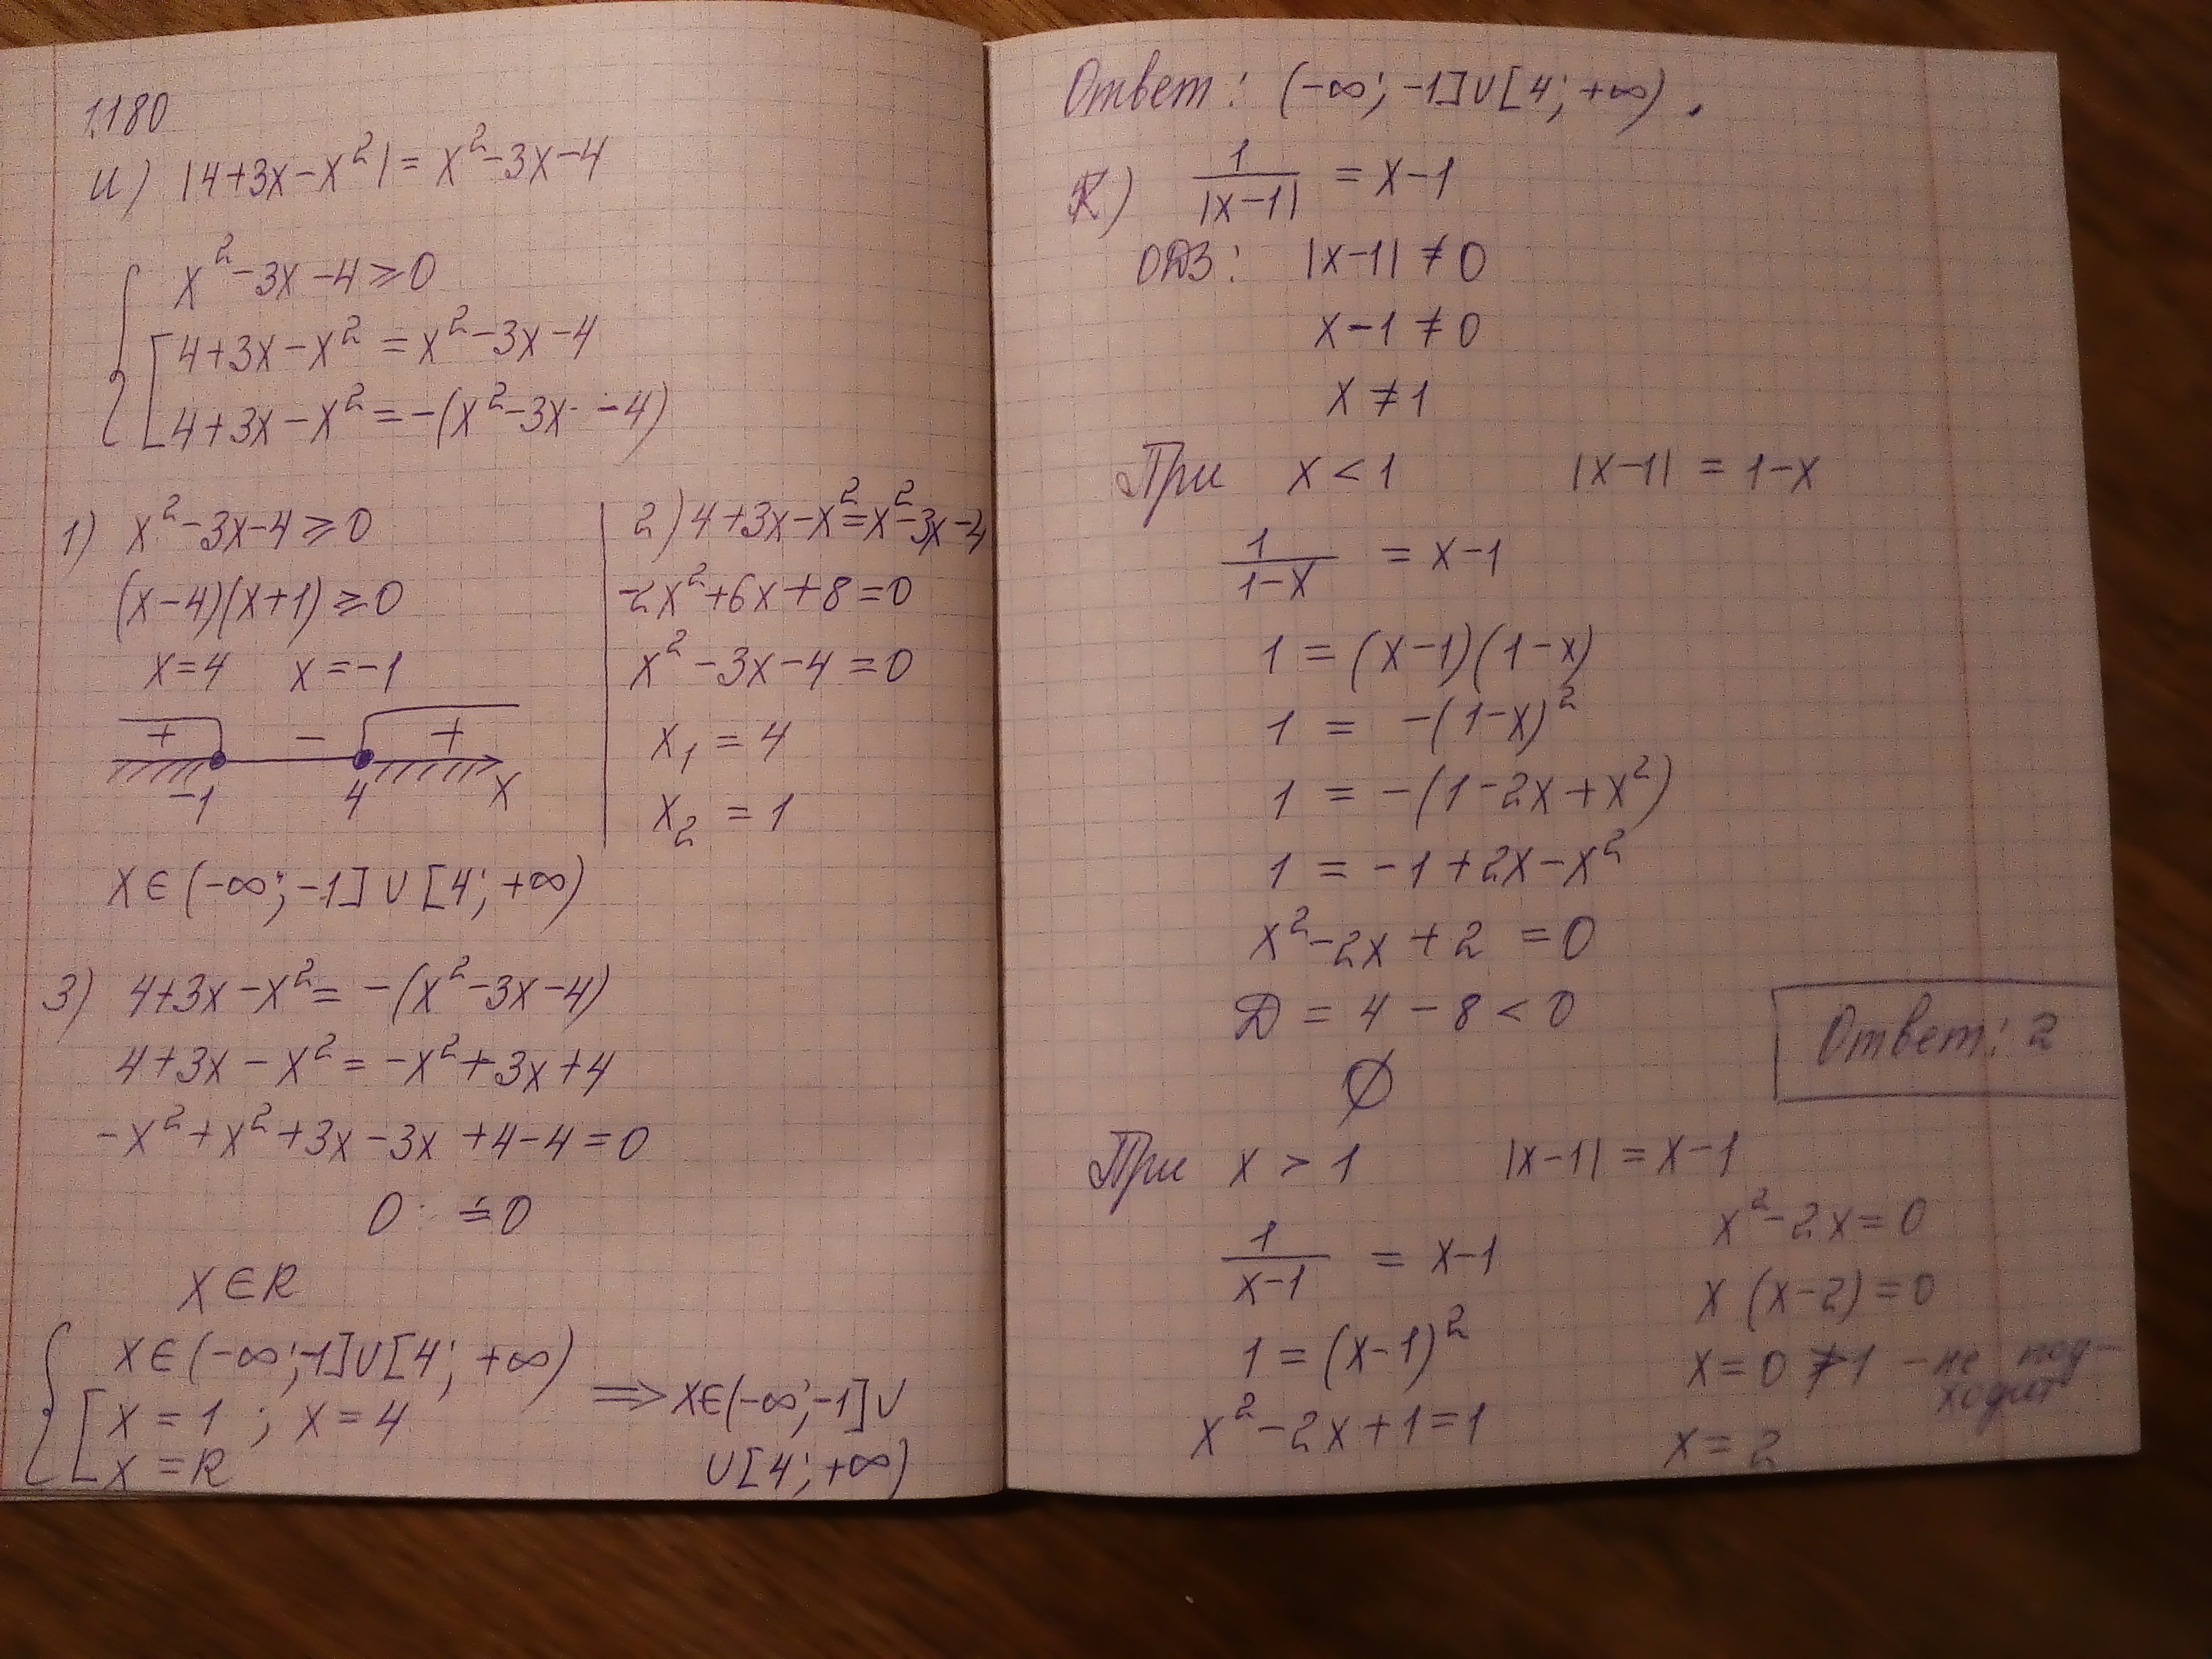 1.180
и) |4+3x-x²| = x²-3x-4
{ x²-3x-4≥0
[ 4+3x-x² = x²-3x-4
4+3x-x² = -(x²-3x-4)
1) x²-3x-4≥0
(x-4)(x+1)≥0
x=4 x=-1
+ - +
-1 4 x
x∈(-∞;-1]∪[4;+∞)
2) 4+3x-x²=x²-3x-4
-2x²+6x+8=0
x²-3x-4=0
x₁ = 4
x₂ = 1
3) 4+3x-x²= -(x²-3x-4)
4+3x-x²= -x²+3x+4
-x²+x²+3x-3x+4-4=0
0 = 0
x∈R
{ x∈(-∞;-1]∪[4;+∞)
[ x=1 ; x=4
x=R
⇒ x∈(-∞;-1]∪
∪[4;+∞)
Ответ: (-∞;-1]∪[4;+∞).
к) 1/|x-1| = x-1
ОДЗ: |x-1| ≠ 0
x-1 ≠ 0
x ≠ 1
При x < 1 |x-1| = 1-x
1/(1-x) = x-1
1 = (x-1)(1-x)
1 = -(1-x)²
1 = -(1-2x+x²)
1 = -1+2x-x²
x²-2x+2 = 0
Д = 4-8 < 0
∅
Ответ: 2
При x > 1 |x-1| = x-1
1/(x-1) = x-1
1 = (x-1)²
x²-2x+1=1
x²-2x=0
x(x-2)=0
x=0 ≯1 - не под-
ходит
x=2